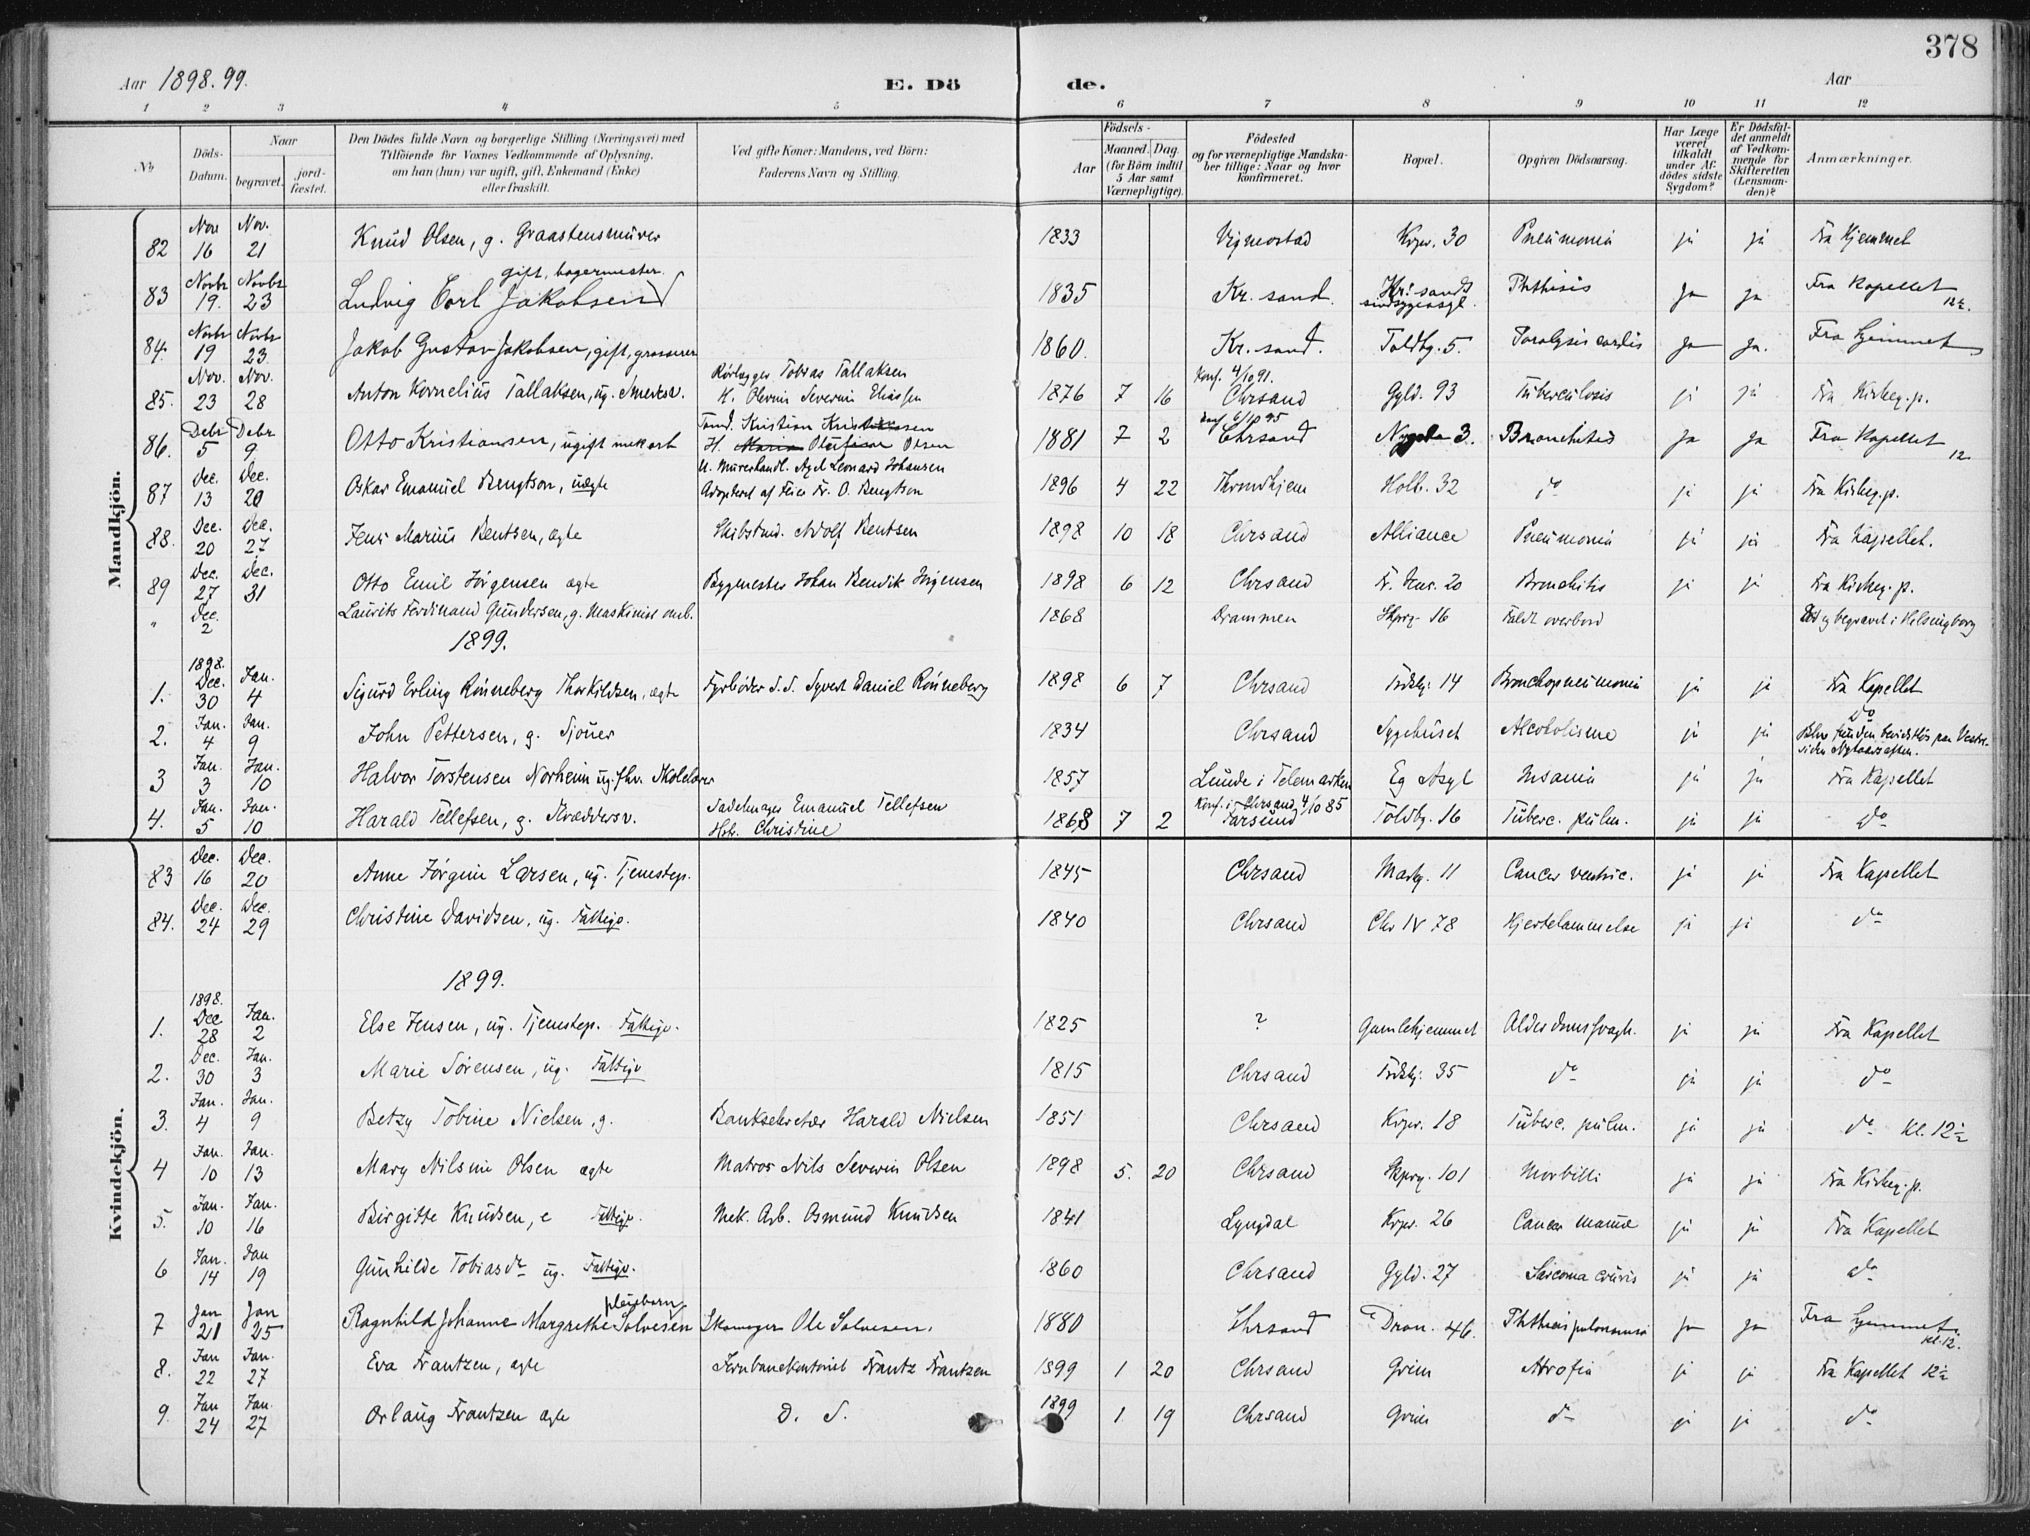 378
Aar 1898.99. E. Dö de. Aar
1 2 3 4 5 6 7 8 9 10 11 12
No
Döds-Datum.
Naar
begravet.
jordfæstet.
Den Dödes fulde Navn og borgerlige Stilling (Næringsvei) med
Tilföiende for Voxnes Vedkommende af Oplysning,
om han (hun) var ugift, gift, Enkemand (Enke)
eller fraskilt.
Ved gifte Koner: Mandens, ved Börn:
Faderens Navn og Stilling.
Födsels-
Aar
Maaned. Dag.
(for Börn indtil
5 Aar samt
Værnepligtige).
Födested
og for værnepligtige Mandska-
ber tillige: Naar og hvor
konfirmeret.
Bopæl.
Opgiven Dödsaarsag.
Har Læge
været
tilkaldt
under Af-
dödes sidste
Sygdom?
Er Dödsfal-
det anmeldt
af Vedkom-
mende for
Skifteretten
(Lensman-
den)?
Anmærkninger.
Mandkjön.
82 Nov 16 Nov. 21 Knud Olsen, g. Graastensmurer 1833 Vigmostad Krpr. 30 Pneumonia ja ja Fra Hjemmet
83 Novbr 19. Novbr 23 Ludvig Carl Jakobsen gift, bagermester. 1835 Kr. sand. Kr. sands sindsygeasyl. Phthisis Ja ja Fra Kapellet 12½.
84. Novbr 19 Novbr 23 Jakob Gustav Jakobsen, gift, grosserer 1860. Kr. sand. Toldbg. 5. Paralysis cordis Ja Ja. Fra Hjemmet
85. Nov. 23 Nov. 28 Anton Kornelius Tallaksen, ug. Smedesv. Rørlægger Tobias Tallaksen 1876 7 16 Konf. 4/10 91. Chrsand Gyld. 93 Tuberculosis ja ja Fra Kirkeg.p.
86. Debr 5 Debr 9. Otto Kristiansen, ugift mek arb Kristian Kristiansen H. Olsen 1881 7 2 konf 6/10 95 Chrsand 3. Bronchitis ja ja Fra Kapellet 12
87 Dec. 13 Dec. 20 Oskar Emanuel Bengtson, uægte U. Murerhandl. Axel Leonard Johansen Adopteret af Feier Fr. O. Bengtson 1896 4 22 Throndhjem Holb. 32 do ja ja Fra Kirkeg.p.
88. Dec. 20 Dec. 27 Jens Marius Bentsen, ægte Skibstmd. Adolf Bentsen 1898 10 18 Chrsand Alliance Pneumonia ja ja Fra Kapellet.
89 Dec. 27 Dec. 31 Otto Emil Jörgensen ægte Bygmester Johan Bendik Jörgensen 1898 6 12 Chrsand Fr. Hus. 20 Bronchitis ja ja Fra Kirkeg.p.
" Dec. 2 Laurits Ferdinand Gundersen, g. Maskinist omb. 1868 Drammen Skprg. 16 Faldt overbord og begravet i Helsingborg
1899.
1. 1898. Dec. 30 Jan. 4 Sigurd Erling Rönneberg Thorkildsen, ægte Fyrböder S.S. Syvert Daniel Rönneberg 1898 6 7 Chrsand Tordskj. 14 Bronchopneumonia ja ja Fra Kapellet
2. Jan. 4 Jan. 9 John Pettersen, g. Sjouer 1834 Chrsand Sygehuset Alcoholisme ja ja do Blev funden bevidstlös paa Vestre-siden Nytaarsaften.
3 Jan. 3 Jan. 10 Halvor Torstensen Norheim ug. fhv. Skolelærer 1857 Lunde i Telemarken Eg Asyl Insania ja ja Fra Kapellet
4. Jan. 5 Jan. 10 Harald Tellefsen, g. Skræddersv. Sadelmager Emanuel Tellefsen Hst. Christine 1868 7 2 Konf. i Chrsand 4/10 85 Farsund Toldbg. 16 Tuberc. pulm. ja ja do
Kvindekjön.
83 Dec. 16 Dec. 20 Anne Jörgine Larsen, ug. Tjenestep. 1845 Chrsand Markg. 11 Cancer ventric. ja ja Fra Kapellet
84. Dec. 24 Dec. 29 Christine Davidsen, ug. Fattigv. 1840 Chrsand Chr IV 78 Hjertelammelse ja ja do
1899.
1. 1898. Dec 28 Jan. 2 Else Jensen, ug. Tjenestep. Fattigv. 1825 ? Gamlehjemmet Alderdomssvagh. ja ja Fra Kapellet
2. Dec. 30 Jan. 3 Marie Sörensen, ug. Fattigv 1815 Chrsand Tordskj. 35 do ja ja do
3. Jan. 4 Jan. 9 Betzy Tobine Nielsen, g. Banksekretær Harald Nielsen 1851 Chrsand Krpr. 18 Tuberc. pulm. ja ja do kl. 12½
4 Jan. 10 Jan. 13 Mary Nilsine Olsen ægte Matros Nils Severin Olsen 1898 5. 20 Chrsand Skprg. 101 Morbilli ja ja Fra Kirkeg.p.
5. Jan. 10 Jan. 16 Birgitte Knudsen, e Fattigv. Mek. Arb. Osmund Knudsen 1841 Lyngdal Krpr. 26 Cancer mamae ja ja Fra Kapellet
6 Jan. 14 Jan 19 Gunhilde Tobiasdr ug. Fattigv. 1860 Chrsand Gyld. 27 Sarcoma cruris ja ja do
7 Jan 21 Jan 25 Ragnhild Johanne Margrethe Solvesen pleiebarn Skomager Ole Solvesen. 1880 Chrsand Dron. 46. Phthisis pulmonum ja ja Fra Hjemmet kl. 12.
8. Jan 22 Jan. 27 Eva Frantzen, ægte Jernbanekontorist Frantz Frantzen 1899 1 20 Chrsand Grim Atrofia ja ja Fra Kapellet 12½
9. Jan 24 Jan. 27 Orlaug Frantzen ægte D. S. 1899 1 19 Chrsand Grim do ja ja do